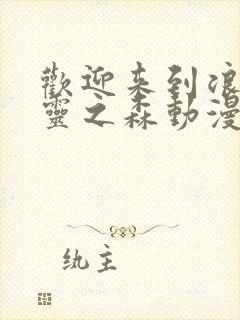 歡迎来到浪
靈之森動漫
纨主